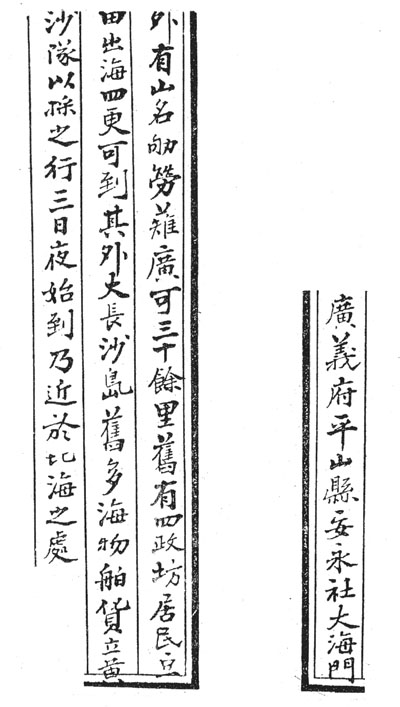 廣義府平山縣安永社大海門
外有山名劬勞薙廣可三十餘里舊有四政坊居民豆
田出海四更可到其外大長沙島舊多海物舶貨立黃
沙隊以採之行三日夜始到乃近於北海之處